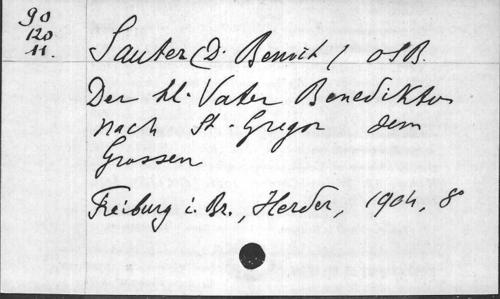 90
120
11.
Sauter (D. Benoit) OSB.
Der hl. Vater Benediktus
nach St. Gregor dem
Grossen
Freiburg i. Br., Herder, 1904, 8°